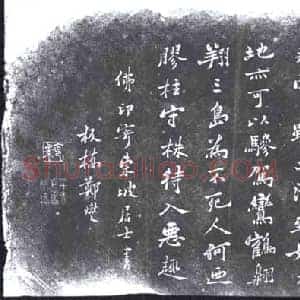 地亦可以驂駕鸞鶴翱
翔三島為不死人何迺
膠柱守株待入惡趣
佛印寄東坡居士書
板橋鄭燮